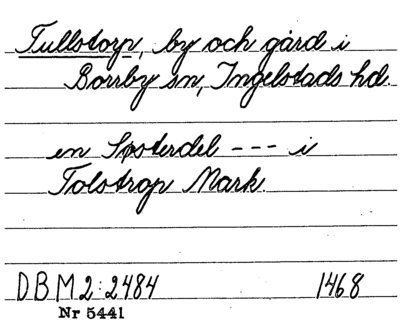 Tullstorp, by och gård i
Borrby sn, Ingelstads hd.
en Søsterdel --- i
Tolstrop Mark.
DBM2:2484 1468
Nr 5441